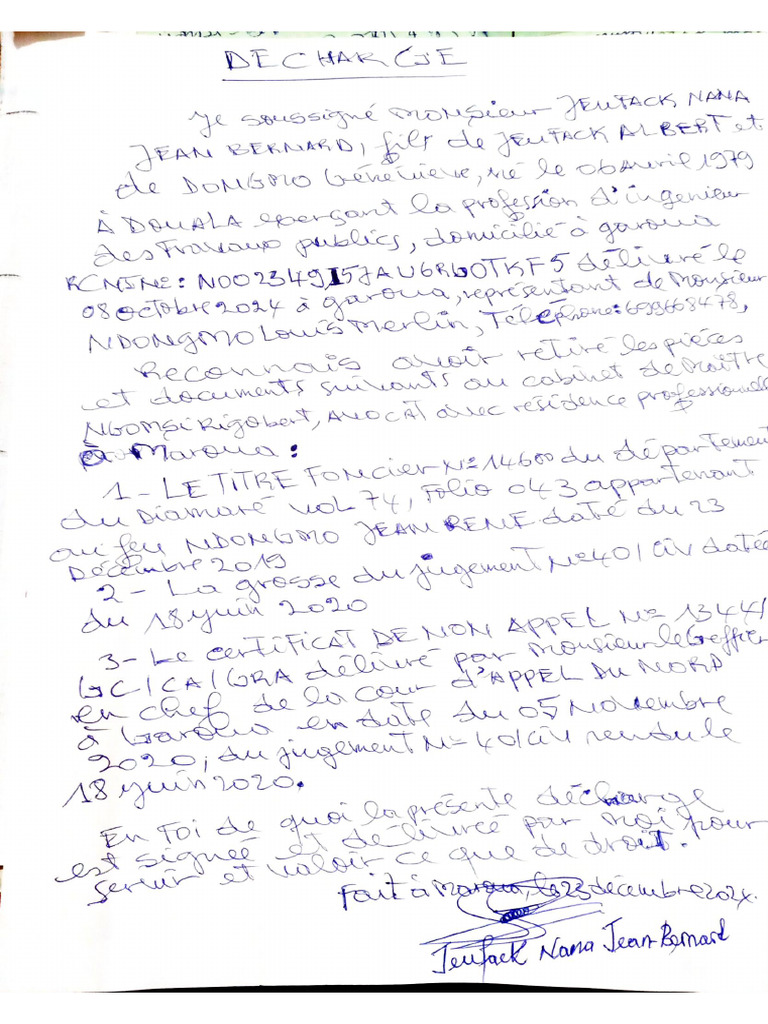 DECHARGE
Je soussigné Monsieur JEUFACK NANA
JEAN BERNARD, fils de JEUFACK ALBERT et
de DONGMO Généviève, né le 06 avril 1979
À DOUALA exerçant la profession d'ingenieur
des Travaux publics, domicilié à garoua
N002349157AU6R60TKF5 délivré le
08 octobre 2024 à garoua, représentant de Monsieur
NDONGMO Louis Merlin, Téléphone: 699668478,
Reconnais avoir retiré les pièces
et documents suivants au cabinet de Maître
NGOMSI Rigobert, AVOCAT avec résidence professionnelle
à Maroua :
1 - LE TITRE FONCIER N° 14600 du département
du Diamaré VOL 74, Folio 043 appartenant
au feu NDONGMO JEAN RENE daté du 23
Décembre 2019
2 - La grosse du jugement N° 40/CIV datée
du 18 juin 2020
3 - Le certificat DE NON APPEL N° 1344/
GC/CA/GRA délivré par Monsieur le Greffier
en chef de la cour d'APPEL DU NORD
à Garoua en date du 05 Novembre
2020, du jugement N° 40/CIV rendu le
18 juin 2020.
En Foi de quoi la présente décharge
est signée et délivrée par moi pour
servir et valoir ce que de droit.
Fait à Maroua, le 23 décembre 2024.
Jeufack Nana Jean Bernard